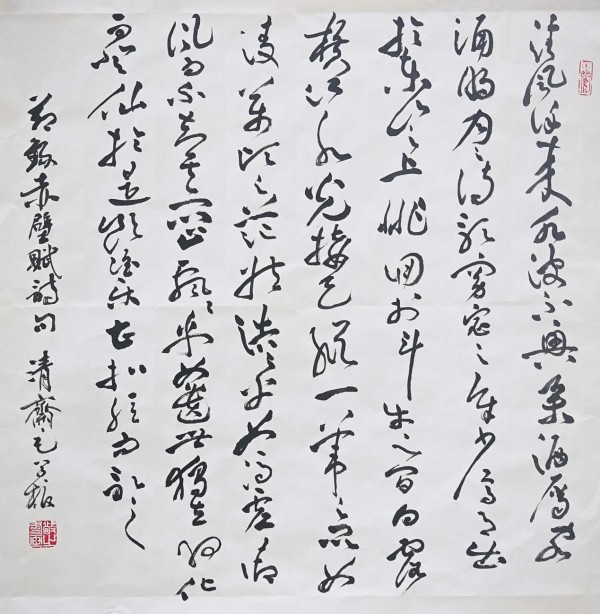 清風徐来水波不興举酒属客
誦明月之詩歌窈窕之章少焉月出
於東山之上徘徊於斗牛之间白露
横江水光接天縱一苇之所如
凌萬顷之茫然浩浩乎如馮虚御
風而不知其所止飘飘乎如遗世獨立羽化
而登仙於是飲酒乐甚扣舷而歌之
节録赤壁賦詩句 清齋